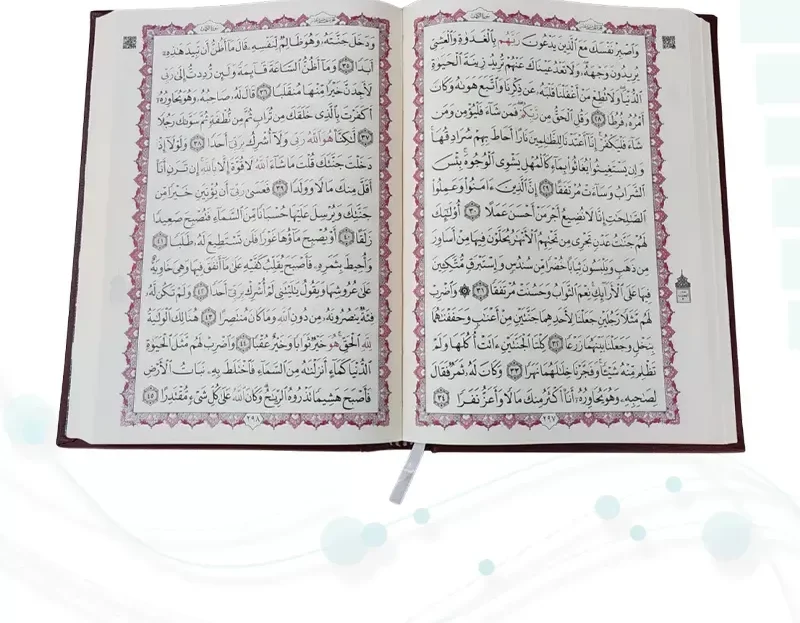 وَٱصْبِرْ نَفْسَكَ مَعَ ٱلَّذِينَ يَدْعُونَ رَبَّهُم بِٱلْغَدَوٰةِ وَٱلْعَشِيِّ
يُرِيدُونَ وَجْهَهُۥ وَلَا تَعْدُ عَيْنَاكَ عَنْهُمْ تُرِيدُ زِينَةَ ٱلْحَيَوٰةِ
ٱلدُّنْيَا وَلَا تُطِعْ مَنْ أَغْفَلْنَا قَلْبَهُۥ عَن ذِكْرِنَا وَٱتَّبَعَ هَوَىٰهُ وَكَانَ
أَمْرُهُۥ فُرُطًا ٢٨ وَقُلِ ٱلْحَقُّ مِن رَّبِّكُمْ فَمَن شَآءَ فَلْيُؤْمِن وَمَن
شَآءَ فَلْيَكْفُرْ إِنَّآ أَعْتَدْنَا لِلظَّٰلِمِينَ نَارًا أَحَاطَ بِهِمْ سُرَادِقُهَا
وَإِن يَسْتَغِيثُوا۟ يُغَاثُوا۟ بِمَآءٍ كَٱلْمُهْلِ يَشْوِى ٱلْوُجُوهَ بِئْسَ
ٱلشَّرَابُ وَسَآءَتْ مُرْتَفَقًا ٢٩ إِنَّ ٱلَّذِينَ ءَامَنُوا۟ وَعَمِلُوا۟
ٱلصَّٰلِحَٰتِ إِنَّا لَا نُضِيعُ أَجْرَ مَنْ أَحْسَنَ عَمَلًا ٣٠ أُو۟لَٰٓئِكَ
لَهُمْ جَنَّٰتُ عَدْنٍ تَجْرِى مِن تَحْتِهِمُ ٱلْأَنْهَٰرُ يُحَلَّوْنَ فِيهَا مِنْ أَسَاوِرَ
مِن ذَهَبٍ وَيَلْبَسُونَ ثِيَابًا خُضْرًا مِّن سُندُسٍ وَإِسْتَبْرَقٍ مُّتَّكِـِٔينَ
فِيهَا عَلَى ٱلْأَرَآئِكِ نِعْمَ ٱلثَّوَابُ وَحَسُنَتْ مُرْتَفَقًا ٣١ ۞ وَٱضْرِبْ
لَهُم مَّثَلًا رَّجُلَيْنِ جَعَلْنَا لِأَحَدِهِمَا جَنَّتَيْنِ مِنْ أَعْنَٰبٍ وَحَفَفْنَٰهُمَا
بِنَخْلٍ وَجَعَلْنَا بَيْنَهُمَا زَرْعًا ٣٢ كِلْتَا ٱلْجَنَّتَيْنِ ءَاتَتْ أُكُلَهَا وَلَمْ
تَظْلِم مِّنْهُ شَيْـًٔا وَفَجَّرْنَا خِلَٰلَهُمَا نَهَرًا ٣٣ وَكَانَ لَهُۥ ثَمَرٌ فَقَالَ
لِصَٰحِبِهِۦ وَهُوَ يُحَاوِرُهُۥٓ أَنَا۠ أَكْثَرُ مِنكَ مَالًا وَأَعَزُّ نَفَرًا ٣٤
٢٩٧
وَدَخَلَ جَنَّتَهُۥ وَهُوَ ظَالِمٌ لِّنَفْسِهِۦ قَالَ مَآ أَظُنُّ أَن تَبِيدَ هَٰذِهِۦٓ
أَبَدًا ٣٥ وَمَآ أَظُنُّ ٱلسَّاعَةَ قَآئِمَةً وَلَئِن رُّدِدتُّ إِلَىٰ رَبِّى
لَأَجِدَنَّ خَيْرًا مِّنْهَا مُنقَلَبًا ٣٦ قَالَ لَهُۥ صَاحِبُهُۥ وَهُوَ يُحَاوِرُهُۥٓ
أَكَفَرْتَ بِٱلَّذِى خَلَقَكَ مِن تُرَابٍ ثُمَّ مِن نُّطْفَةٍ ثُمَّ سَوَّىٰكَ رَجُلًا
٣٧ لَّٰكِنَّا۠ هُوَ ٱللَّهُ رَبِّى وَلَآ أُشْرِكُ بِرَبِّىٓ أَحَدًا ٣٨ وَلَوْلَآ إِذْ
دَخَلْتَ جَنَّتَكَ قُلْتَ مَا شَآءَ ٱللَّهُ لَا قُوَّةَ إِلَّا بِٱللَّهِ إِن تَرَنِ أَنَا۠
أَقَلَّ مِنكَ مَالًا وَوَلَدًا ٣٩ فَعَسَىٰ رَبِّىٓ أَن يُؤْتِيَنِ خَيْرًا مِّن
جَنَّتِكَ وَيُرْسِلَ عَلَيْهَا حُسْبَانًا مِّنَ ٱلسَّمَآءِ فَتُصْبِحَ صَعِيدًا
زَلَقًا ٤٠ أَوْ يُصْبِحَ مَآؤُهَا غَوْرًا فَلَن تَسْتَطِيعَ لَهُۥ طَلَبًا ٤١
وَأُحِيطَ بِثَمَرِهِۦ فَأَصْبَحَ يُقَلِّبُ كَفَّيْهِ عَلَىٰ مَآ أَنفَقَ فِيهَا وَهِىَ خَاوِيَةٌ
عَلَىٰ عُرُوشِهَا وَيَقُولُ يَٰلَيْتَنِى لَمْ أُشْرِكْ بِرَبِّىٓ أَحَدًا ٤٢ وَلَمْ تَكُن لَّهُۥ
فِئَةٌ يَنصُرُونَهُۥ مِن دُونِ ٱللَّهِ وَمَا كَانَ مُنتَصِرًا ٤٣ هُنَالِكَ ٱلْوَلَٰيَةُ
لِلَّهِ ٱلْحَقِّ هُوَ خَيْرٌ ثَوَابًا وَخَيْرٌ عُقْبًا ٤٤ وَٱضْرِبْ لَهُم مَّثَلَ ٱلْحَيَوٰةِ
ٱلدُّنْيَا كَمَآءٍ أَنزَلْنَٰهُ مِنَ ٱلسَّمَآءِ فَٱخْتَلَطَ بِهِۦ نَبَاتُ ٱلْأَرْضِ
فَأَصْبَحَ هَشِيمًا تَذْرُوهُ ٱلرِّيَٰحُ وَكَانَ ٱللَّهُ عَلَىٰ كُلِّ شَىْءٍ مُّقْتَدِرًا ٤٥
٢٩٨